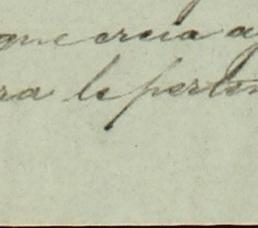 que creia a
ra le perten